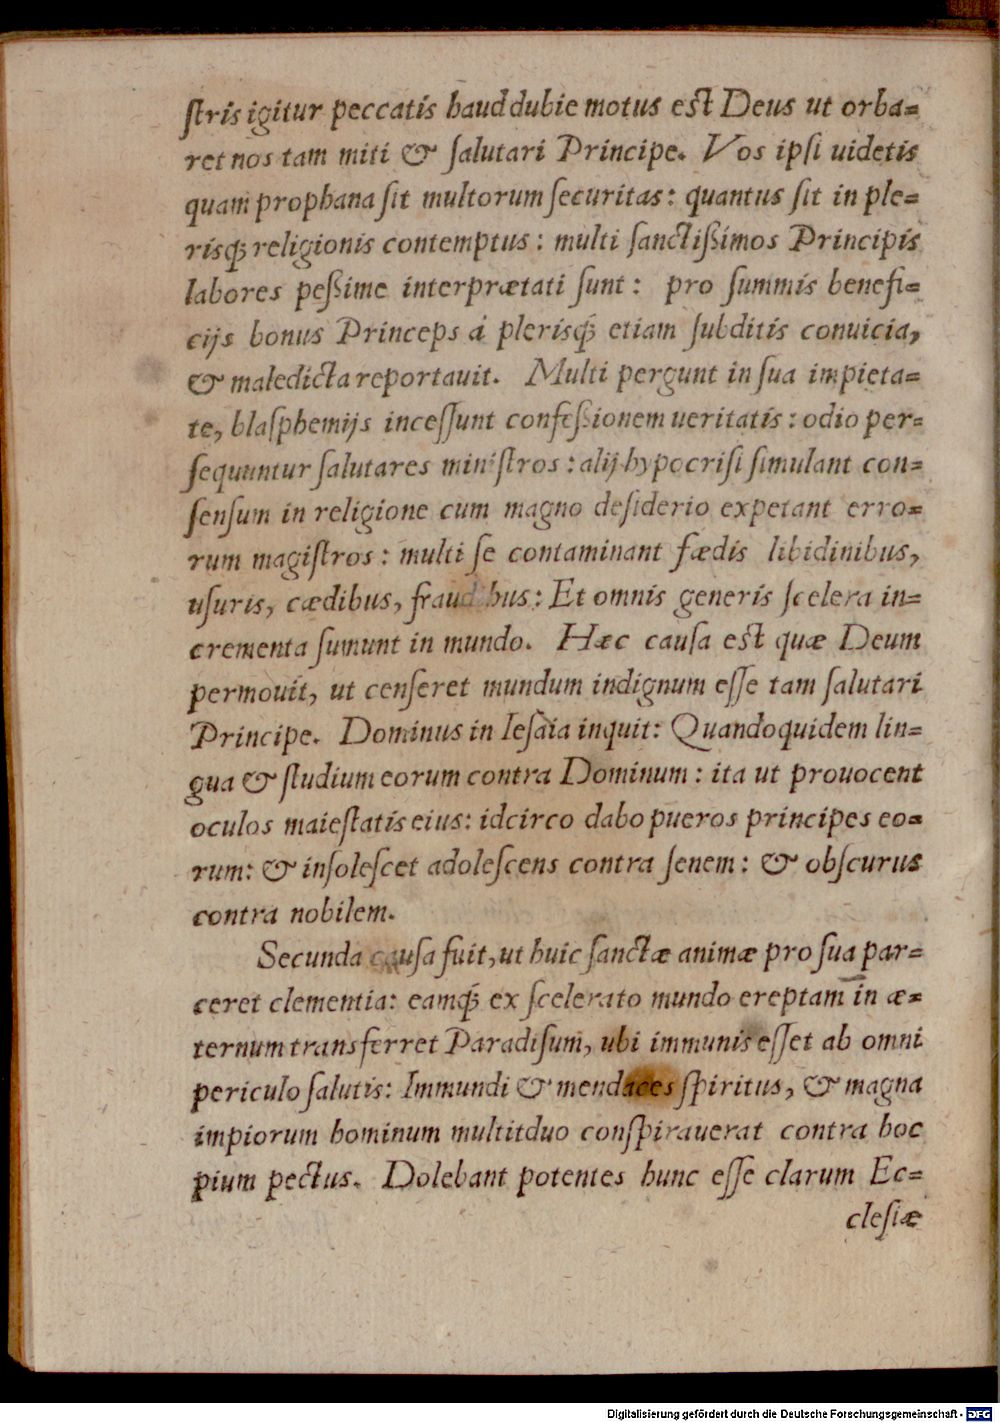 ſtris igitur peccatis haud dubie motus eſt Deus ut orba=
ret nos tam miti & ſalutari Principe. Vos ipſi uidetis
quam prophana ſit multorum ſecuritas: quantus ſit in ple=
risq́; religionis contemptus: multi ſanctißimos Principis
labores peßime interprætati ſunt: pro ſummis benefi=
cijs bonus Princeps à plerisq́; etiam ſubditis conuicia,
& maledicta reportauit. Multi pergunt in ſua impieta=
te, blaſphemijs inceſſunt confeßionem ueritatis: odio per=
ſequuntur ſalutares miniſtros: alij hypocriſi ſimulant con=
ſenſum in religione cum magno deſiderio expetant erro=
rum magiſtros: multi ſe contaminant fædis libidinibus,
uſuris, cædibus, fraudibus: Et omnis generis ſcelera in=
crementa ſumunt in mundo. Hæc cauſa eſt quæ Deum
permouit, ut cenſeret mundum indignum eſſe tam ſalutari
Principe. Dominus in Ieſaia inquit: Quandoquidem lin=
gua & ſtudium eorum contra Dominum: ita ut prouocent
oculos maieſtatis eius: idcirco dabo pueros principes eo=
rum: & inſoleſcet adoleſcens contra ſenem: & obſcurus
contra nobilem.
Secunda cauſa fuit, ut huic ſanctæ animæ pro ſua par=
ceret clementia: eamq́; ex ſcelerato mundo ereptam in æ=
ternum transferret Paradiſum, ubi immunis eſſet ab omni
periculo ſalutis: Immundi & mendaces ſpiritus, & magna
impiorum hominum multitduo conſpirauerat contra hoc
pium pectus. Dolebant potentes hunc eſſe clarum Ec=
cleſiæ
Digitalisierung gefördert durch die Deutsche Forschungsgemeinschaft - DFG